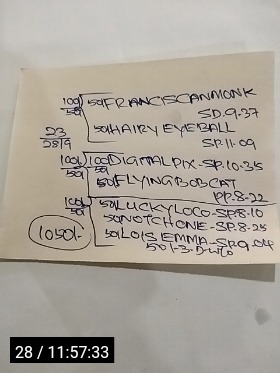 100/50 50/FRANCISCANMONK
SD.9.37
50/HAIRY EYEBALL
SP.11.09
23
28/9
100/50 100/50 DIGITALPIX-SP.10.35
50/FLYINGBOBCAT
PP.8-22
100/50 50/LUCKYLOCO-SP.8-10
50NOTCHONE-SP.8-25
1050/- 50/LOIS EMMA-SP.9.04
50 1-3.D.W/O
28 / 11:57:33